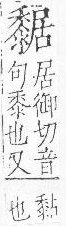 居御切音
句黍也又
黏
也